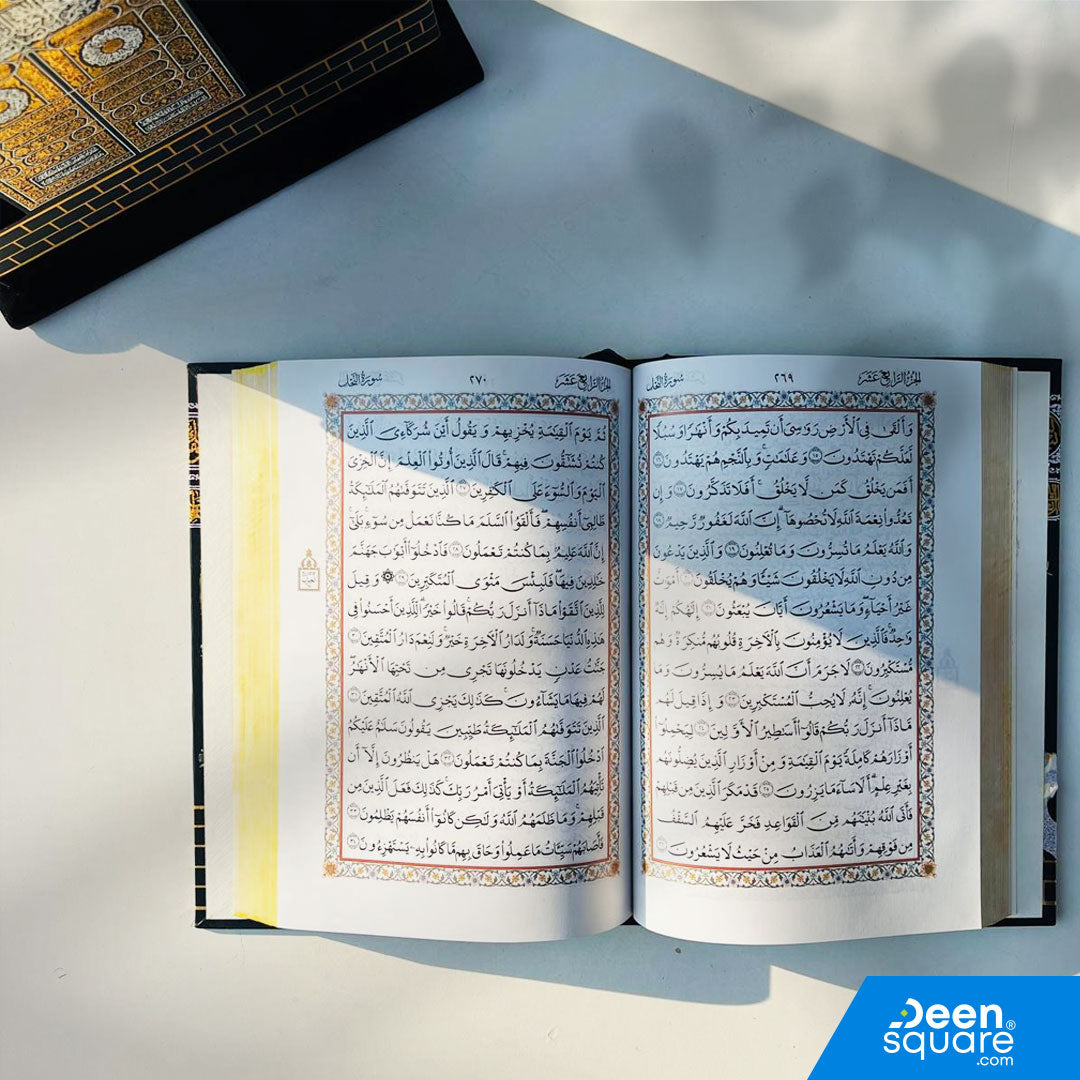 الجزء الرابع عشر ٢٦٩ سورة النحل
وَأَلْقَىٰ فِي ٱلْأَرْضِ رَوَٰسِيَ أَن تَمِيدَ بِكُمْ وَأَنْهَٰرًا وَسُبُلًا
لَّعَلَّكُمْ تَهْتَدُونَ ١٥ وَعَلَٰمَٰتٍ ۚ وَبِٱلنَّجْمِ هُمْ يَهْتَدُونَ ١٦
أَفَمَن يَخْلُقُ كَمَن لَّا يَخْلُقُ ۗ أَفَلَا تَذَكَّرُونَ ١٧ وَإِن
تَعُدُّوا۟ نِعْمَةَ ٱللَّهِ لَا تُحْصُوهَآ ۗ إِنَّ ٱللَّهَ لَغَفُورٌ رَّحِيمٌ ١٨
وَٱللَّهُ يَعْلَمُ مَا تُسِرُّونَ وَمَا تُعْلِنُونَ ١٩ وَٱلَّذِينَ يَدْعُونَ
مِن دُونِ ٱللَّهِ لَا يَخْلُقُونَ شَيْـًٔا وَهُمْ يُخْلَقُونَ ٢٠ أَمْوَٰتٌ
غَيْرُ أَحْيَآءٍ ۖ وَمَا يَشْعُرُونَ أَيَّانَ يُبْعَثُونَ ٢١ إِلَٰهُكُمْ إِلَٰهٌ
وَٰحِدٌ ۚ فَٱلَّذِينَ لَا يُؤْمِنُونَ بِٱلْءَاخِرَةِ قُلُوبُهُم مُّنكِرَةٌ وَهُم
مُّسْتَكْبِرُونَ ٢٢ لَا جَرَمَ أَنَّ ٱللَّهَ يَعْلَمُ مَا يُسِرُّونَ وَمَا
يُعْلِنُونَ ۚ إِنَّهُۥ لَا يُحِبُّ ٱلْمُسْتَكْبِرِينَ ٢٣ وَإِذَا قِيلَ لَهُم
مَّاذَآ أَنزَلَ رَبُّكُمْ ۙ قَالُوٓا۟ أَسَٰطِيرُ ٱلْأَوَّلِينَ ٢٤ لِيَحْمِلُوٓا۟
أَوْزَارَهُمْ كَامِلَةً يَوْمَ ٱلْقِيَٰمَةِ ۙ وَمِنْ أَوْزَارِ ٱلَّذِينَ يُضِلُّونَهُم
بِغَيْرِ عِلْمٍ ۗ أَلَا سَآءَ مَا يَزِرُونَ ٢٥ قَدْ مَكَرَ ٱلَّذِينَ مِن قَبْلِهِمْ
فَأَتَى ٱللَّهُ بُنْيَٰنَهُم مِّنَ ٱلْقَوَاعِدِ فَخَرَّ عَلَيْهِمُ ٱلسَّقْفُ
مِن فَوْقِهِمْ وَأَتَىٰهُمُ ٱلْعَذَابُ مِنْ حَيْثُ لَا يَشْعُرُونَ ٢٦
الجزء الرابع عشر ٢٧٠ سورة النحل
ثُمَّ يَوْمَ ٱلْقِيَٰمَةِ يُخْزِيهِمْ وَيَقُولُ أَيْنَ شُرَكَآءِىَ ٱلَّذِينَ
كُنتُمْ تُشَٰٓقُّونَ فِيهِمْ ۚ قَالَ ٱلَّذِينَ أُوتُوا۟ ٱلْعِلْمَ إِنَّ ٱلْخِزْىَ
ٱلْيَوْمَ وَٱلسُّوٓءَ عَلَى ٱلْكَٰفِرِينَ ٢٧ ٱلَّذِينَ تَتَوَفَّىٰهُمُ ٱلْمَلَٰٓئِكَةُ
ظَالِمِىٓ أَنفُسِهِمْ ۖ فَأَلْقَوُا۟ ٱلسَّلَمَ مَا كُنَّا نَعْمَلُ مِن سُوٓءٍۭ ۚ بَلَىٰٓ
إِنَّ ٱللَّهَ عَلِيمٌۢ بِمَا كُنتُمْ تَعْمَلُونَ ٢٨ فَٱدْخُلُوٓا۟ أَبْوَٰبَ جَهَنَّمَ
خَٰلِدِينَ فِيهَا ۖ فَلَبِئْسَ مَثْوَى ٱلْمُتَكَبِّرِينَ ٢٩ ۞ وَقِيلَ
لِلَّذِينَ ٱتَّقَوْا۟ مَاذَآ أَنزَلَ رَبُّكُمْ ۚ قَالُوا۟ خَيْرًا ۗ لِّلَّذِينَ أَحْسَنُوا۟ فِى
هَٰذِهِ ٱلدُّنْيَا حَسَنَةٌ ۚ وَلَدَارُ ٱلْءَاخِرَةِ خَيْرٌ ۚ وَلَنِعْمَ دَارُ ٱلْمُتَّقِينَ ٣٠
جَنَّٰتُ عَدْنٍ يَدْخُلُونَهَا تَجْرِى مِن تَحْتِهَا ٱلْأَنْهَٰرُ ۖ
لَهُمْ فِيهَا مَا يَشَآءُونَ ۚ كَذَٰلِكَ يَجْزِى ٱللَّهُ ٱلْمُتَّقِينَ ٣١
ٱلَّذِينَ تَتَوَفَّىٰهُمُ ٱلْمَلَٰٓئِكَةُ طَيِّبِينَ ۙ يَقُولُونَ سَلَٰمٌ عَلَيْكُمُ
ٱدْخُلُوا۟ ٱلْجَنَّةَ بِمَا كُنتُمْ تَعْمَلُونَ ٣٢ هَلْ يَنظُرُونَ إِلَّآ أَن
تَأْتِيَهُمُ ٱلْمَلَٰٓئِكَةُ أَوْ يَأْتِىَ أَمْرُ رَبِّكَ ۚ كَذَٰلِكَ فَعَلَ ٱلَّذِينَ مِن
قَبْلِهِمْ ۚ وَمَا ظَلَمَهُمُ ٱللَّهُ وَلَٰكِن كَانُوٓا۟ أَنفُسَهُمْ يَظْلِمُونَ ٣٣
فَأَصَابَهُمْ سَيِّـَٔاتُ مَا عَمِلُوا۟ وَحَاقَ بِهِم مَّا كَانُوا۟ بِهِۦ يَسْتَهْزِءُونَ ٣٤
Deen
square®
.com